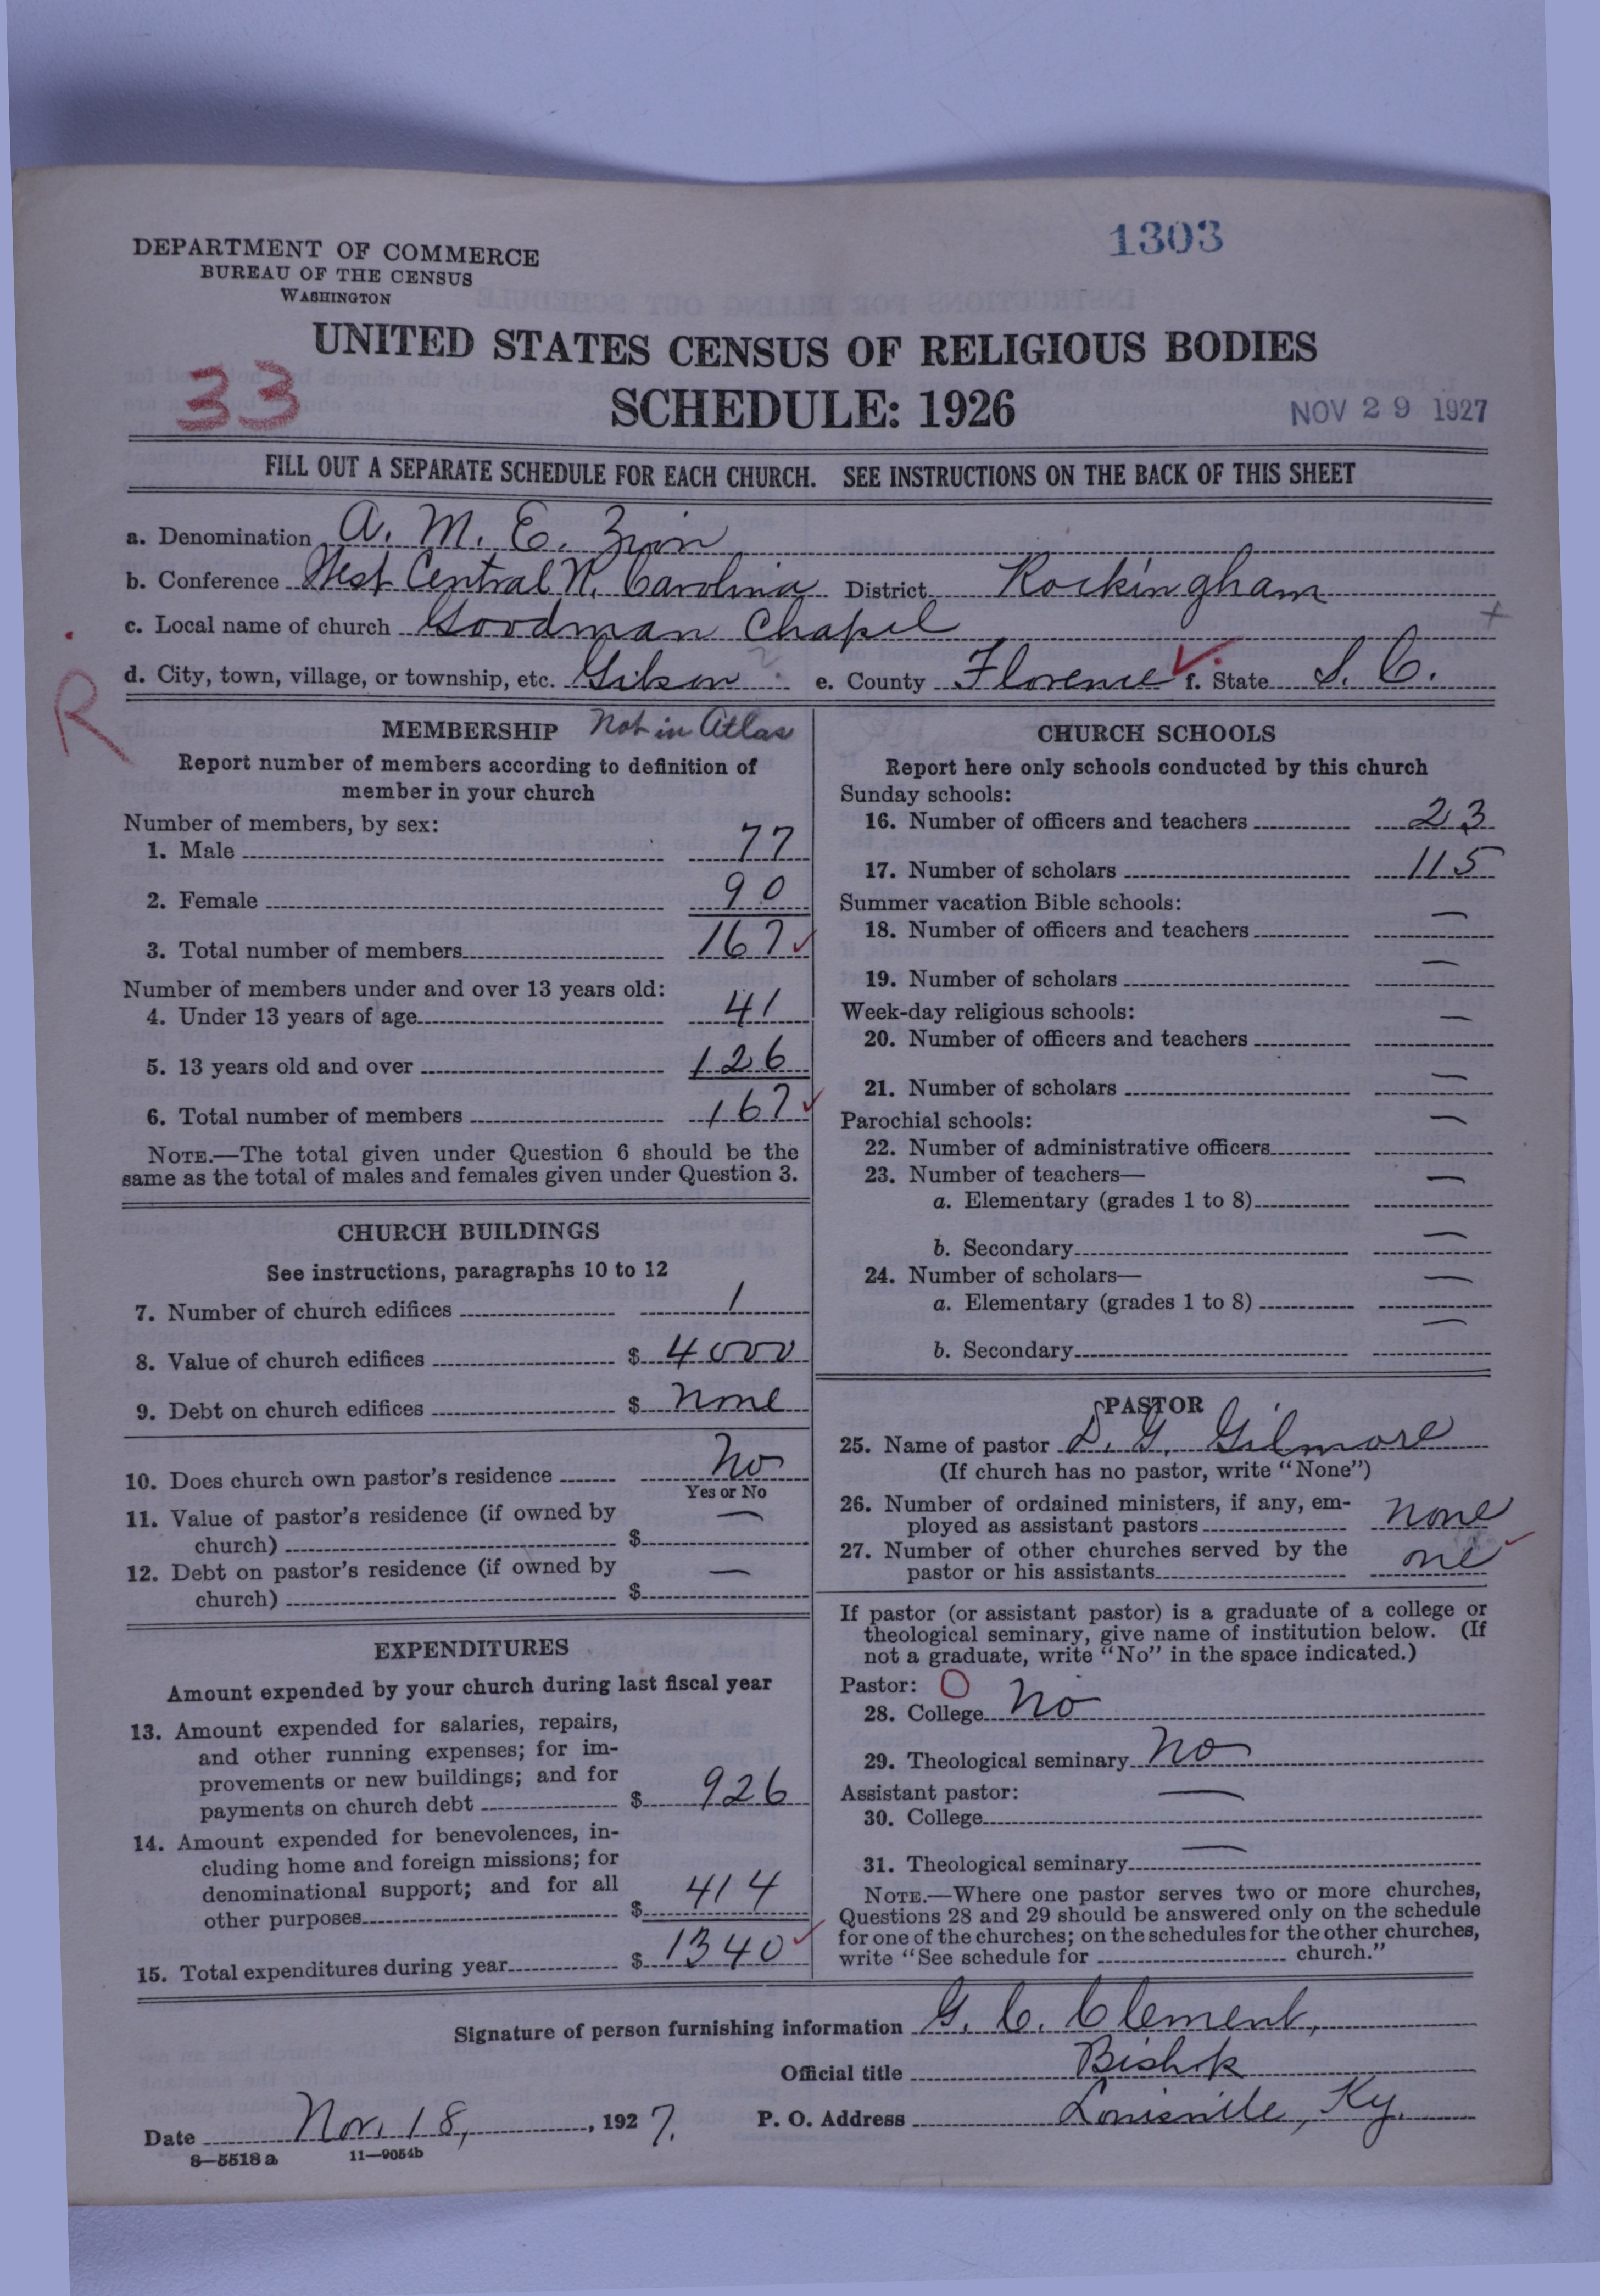 1303
DEPARTMENT OF COMMERCE
BUREAU OF THE CENSUS
WASHINGTON
UNITED STATES CENSUS OF RELIGIOUS BODIES
33
SCHEDULE: 1926
NOV 29 1927
FILL OUT A SEPARATE SCHEDULE FOR EACH CHURCH. SEE INSTRUCTIONS ON THE BACK OF THIS SHEET
a. Denomination A. M. E. Zion
b. Conference West Central N. Carolina District Rockingham
c. Local name of church Goodman Chapel
d. City, town, village, or township, etc. Gibson ? e. County Florence f. State S. C.
R
MEMBERSHIP Not in Atlas
Report number of members according to definition of
member in your church
Number of members, by sex:
1. Male 77
2. Female 90
3. Total number of members 167
Number of members under and over 13 years old:
4. Under 13 years of age 41
5. 13 years old and over 126
6. Total number of members 167
NOTE.—The total given under Question 6 should be the
same as the total of males and females given under Question 3.
CHURCH BUILDINGS
See instructions, paragraphs 10 to 12
7. Number of church edifices 1
8. Value of church edifices $ 4000
9. Debt on church edifices $ none
10. Does church own pastor's residence No
Yes or No
11. Value of pastor's residence (if owned by
church) $ —
12. Debt on pastor's residence (if owned by
church) $ —
EXPENDITURES
Amount expended by your church during last fiscal year
13. Amount expended for salaries, repairs,
and other running expenses; for im-
provements or new buildings; and for
payments on church debt $ 926
14. Amount expended for benevolences, in-
cluding home and foreign missions; for
denominational support; and for all
other purposes $ 414
15. Total expenditures during year $ 1340
CHURCH SCHOOLS
Report here only schools conducted by this church
Sunday schools:
16. Number of officers and teachers 23
17. Number of scholars 115
Summer vacation Bible schools:
18. Number of officers and teachers —
19. Number of scholars —
Week-day religious schools:
20. Number of officers and teachers —
21. Number of scholars —
Parochial schools:
22. Number of administrative officers —
23. Number of teachers—
a. Elementary (grades 1 to 8) —
b. Secondary —
24. Number of scholars—
a. Elementary (grades 1 to 8) —
b. Secondary —
PASTOR
25. Name of pastor D. G. Gilmore
(If church has no pastor, write "None")
26. Number of ordained ministers, if any, em-
ployed as assistant pastors none
27. Number of other churches served by the
pastor or his assistants one
If pastor (or assistant pastor) is a graduate of a college or
theological seminary, give name of institution below. (If
not a graduate, write "No" in the space indicated.)
Pastor: 0
28. College No
29. Theological seminary No
Assistant pastor:
30. College —
31. Theological seminary —
NOTE.—Where one pastor serves two or more churches,
Questions 28 and 29 should be answered only on the schedule
for one of the churches; on the schedules for the other churches,
write "See schedule for church."
Signature of person furnishing information G. C. Clement,
Official title Bishop
Date Nov. 18, , 1927. P. O. Address Louisville, Ky.
8—5518a 11—9054b